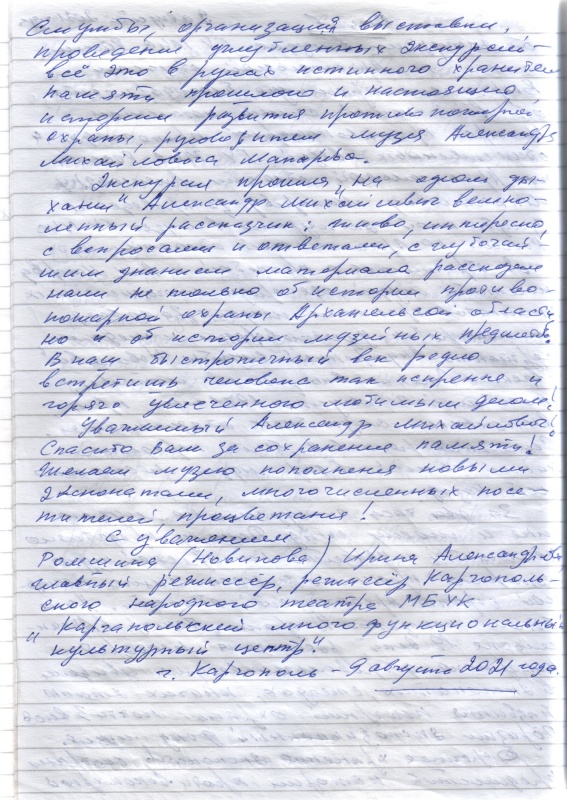 Службы, организация выставки,
проведение углубленных экскурсий –
всё это в руках истинного хранителя
памяти прошлого и настоящего
истории развития противопожарной
охраны, руководителя музея Александра
Михайловича
Экскурсия прошла "на одном ды-
хании" Александр Михайлович велико-
лепный рассказчик: живо, интересно,
с вопросами и ответами, с глубочай-
шим знанием материала рассказал
нам не только об истории противо-
пожарной охраны Архангельской области,
но и об истории музейных предметов.
В наш быстротечный век редко
встретишь человека так искренне и
горячо увлечённого любимым делом!
Уважаемый Александр Михайлович!
Спасибо Вам за сохранение памяти!
Желаем музею пополнения новыми
экспонатами, многочисленных посе-
тителей, процветания!
С уважением
(Новикова) Ирина Александровна,
главный режиссёр, режиссёр Каргополь-
ского народного театра МБУК
"Каргопольский многофункциональный
культурный центр".
г. Каргополь – 9 августа 2021 года.